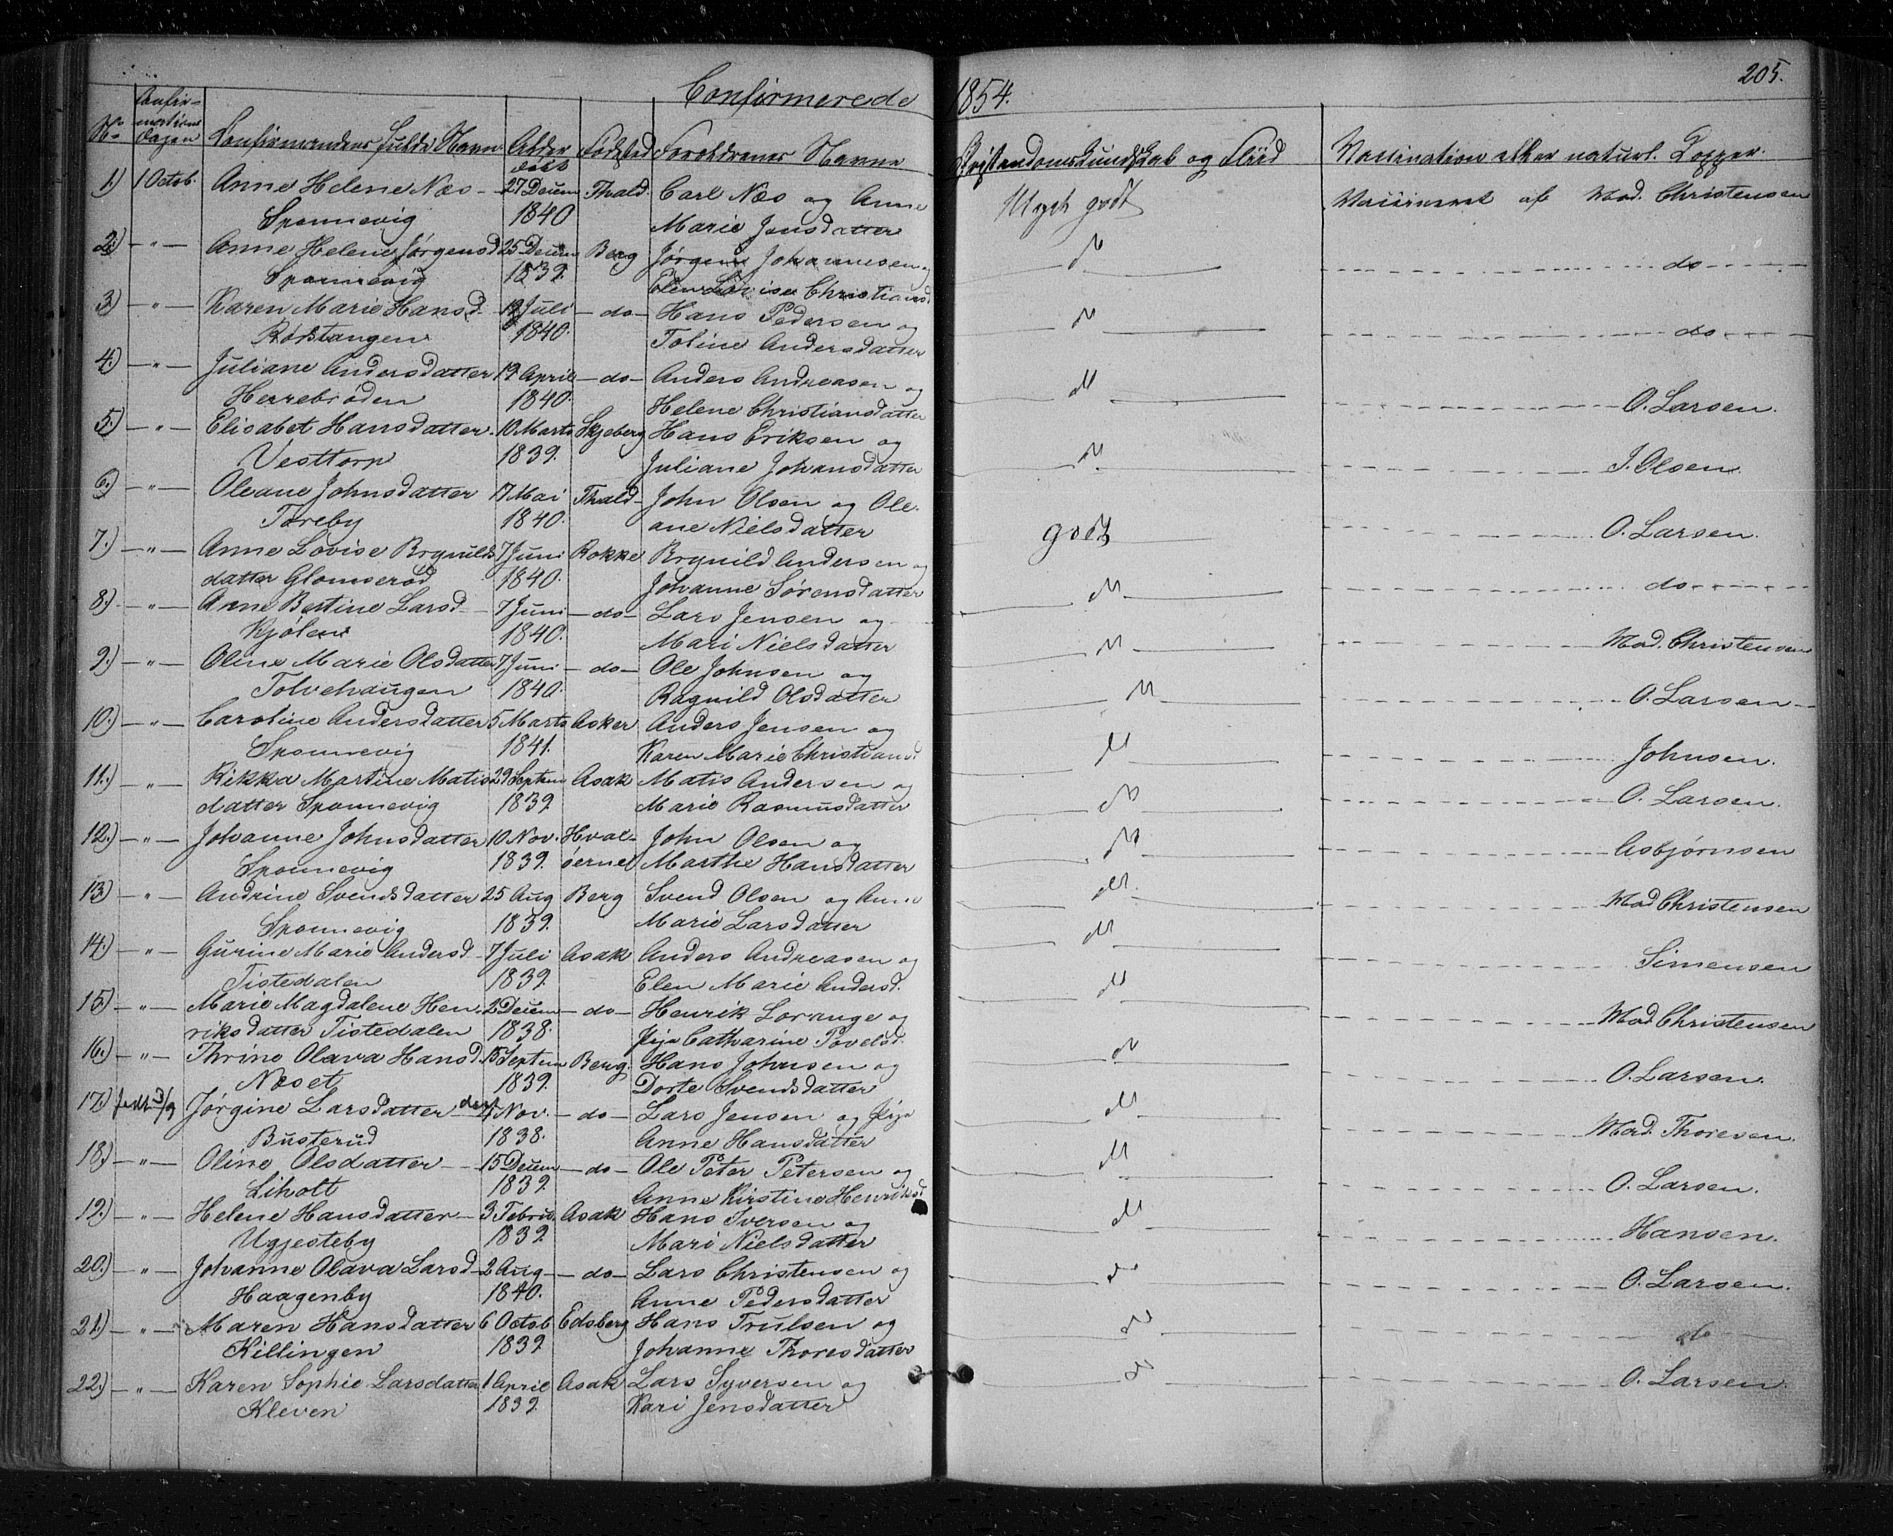 Confirmerede 1854. 205.
No Confirmationsdagen Confirmandens fulde Navn Alder født Fødsted Forældrenes Navne Christendomskundskab og Fliid Vaccination eller naturl. Kopper.
1.) 1 Octob. Anne Helene Næs 27 Decem Fhald. Carl Næs og Anne Meget godt Vaccineret af Mad. Christensen
Sponnevig 1840 Marie Jensdatter
2.) -"- Anne Helene Jørgensd 25 Decem Berg Jørgen Johannesen og do do
Sponnevig 1839. Elen Lovise Christiansd
3.) -"- Karen Marie Hansd. Juli -do- Hans Pedersen og do do
Rørstangen 1840. Toline Andersdatter
4.) -"- Juliane Andersdatter 19 April -do- Anders Andreasen og do O. Larsen.
Herrebrøden 1840. Helene Christiansdatter
5.) -"- Elisabet Hansdatter 10 Marts Skjeberg Hans Eriksen og do J. Olsen
Vesttorp 1839. Juliane Johansdatter
6.) -"- Oleane Johnsdatter 17 Mai Fhald- John Olsen og Ole- godt O. Larsen.
Toreby 1840. ane Nielsdatter
7.) -"- Anne Lovise Brynilds 7 Juni Rokke Brynild Andersen og do do
datter Glomserød 1840. Johanne Sørensdatter
8.) -"- Anne Bertine Larsd 7 Juni -do- Lars Jensen og do Mad. Christensen
Kjølen 1840. Mari Nielsdatter
9.) -"- Oline Marie Olsdatter 7 Juni -do- Ole Johnsen og do O. Larsen
Tolvehaugen 1840. Ragnild Olsdatter
10.) -"- Caroline Andersdatter 5 Marts Asker Anders Jensen og do Johnsen.
Sponnevig 1841. Karen Marie Christiansd.
11.) " Rikka Martine Matis 29 Septem Asak Matis Andersen og do O. Larsen.
datter Sponnevig 1839 Marie Rasmusdatter
12.) -"- Johanne Johnsdatter 10 Nov. Hval- John Olsen og do Asbjørnsen
Sponnevig 1839. øerne Marthe Hansdatter
13.) " Andrine Svendsdatter 25 Aug Berg Svend Olsen og Anne do Mad Christensen
Sponnevig 1839. Marie Larsdatter
14.) " Gurine Marie Andersd. 7 Juli Asak Anders Andreasen og do Simensen
Tistedalen 1839. Elen Marie Andersd.
15) -"- Marie Magdalene Hen- 2 Decem -do- Henrik Lorange og do Mad Christensen
riksdatter Tistedalen 1838. Pige Catharine Povelsd.
16.) -"- Thrine Olava Hansd. 15 Septem Berg. Hans Johnsen og do O. Larsen.
Næset 1839. Dorte Svendsdatter
17.) Jørgine Larsdatter Nov. -do- Lars Jensen og Pige do Mad. Thoresen.
Busterud 1838. Anne Hansdatter
18.) -"- Oline Olsdatter 15 Decem -do- Ole Peter Petersen og do O. Larsen.
Liholt 1839 Anne Kirstine Henriksd
19.) -"- Helene Hansdatter 3 Febru. Asak Hans Iversen og do Hansen.
Ugjesteby 1839 Mari Nielsdatter
20.) -"- Johanne Olava Larsd 2 Aug -do- Lars Christensen og do O. Larsen.
Haagenby 1840. Anne Pedersdatter
21.) -"- Maren Hansdatter 6 Octob Edsberg Hans Trulsen og do do
Killingen 1839 Johanne Thoresdatter
22.) -"- Karen Sophie Larsdatter 1 April Asak Lars Syversen og do O. Larsen.
Kleven 1839. Kari Jensdatter